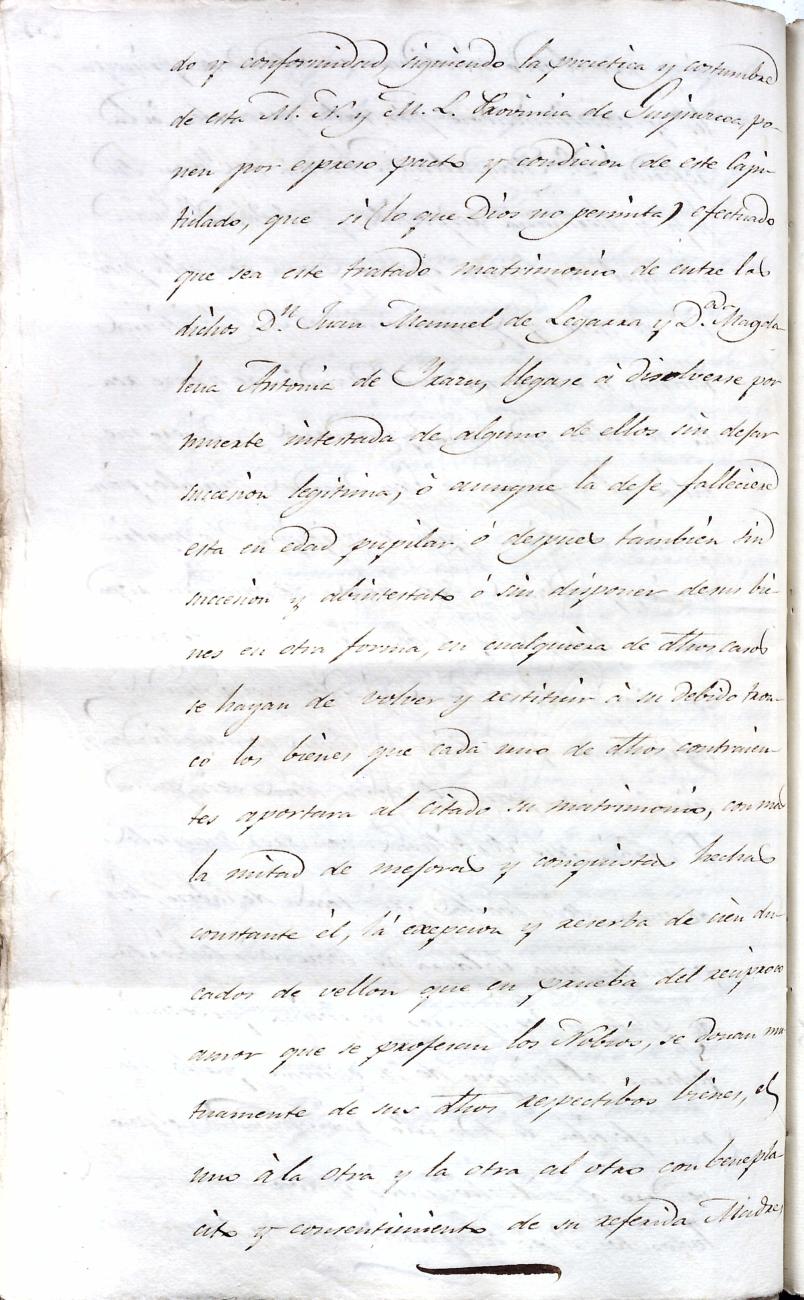 do y conformidad, siguiendo la practica y costumbre
de esta M. N. y M. L. Provincia de Guipuzcoa, po-
nen por espreso pacto y condicion de este Capi-
tulado, que si (lo que Dios no permita) efectuado
que sea este tratado matrimonio de entre los
dichos D.n Juan Manuel de Legarra y D.a Magda-
lena Antonia de Yrazu, llegase à disolverse por
muerte intestada de alguno de ellos sin dejar
succesion legitima, ò aunque la deje falleciere
esta en edad pupilar ó despues tambien sin
succesion y abintestato ó sin disponer de sus bie-
nes en otra forma, en cualquiera de dhos casos
se hayan de volver y restituir à su debido tron-
co los bienes que cada uno de dhos contraien-
tes aportara al citado su matrimonio, con mas
la mitad de mejoras y conquistas hechas
constante èl, à exepcion y reserba de cien du-
cados de vellon que en prueba del reciproco
amor que se profesan los Nobios, se donan mu-
tuamente de sus dhos respectibos bienes, el
uno à la otra y la otra al otro con benepla-
cito y consentimiento de su referida Madre,